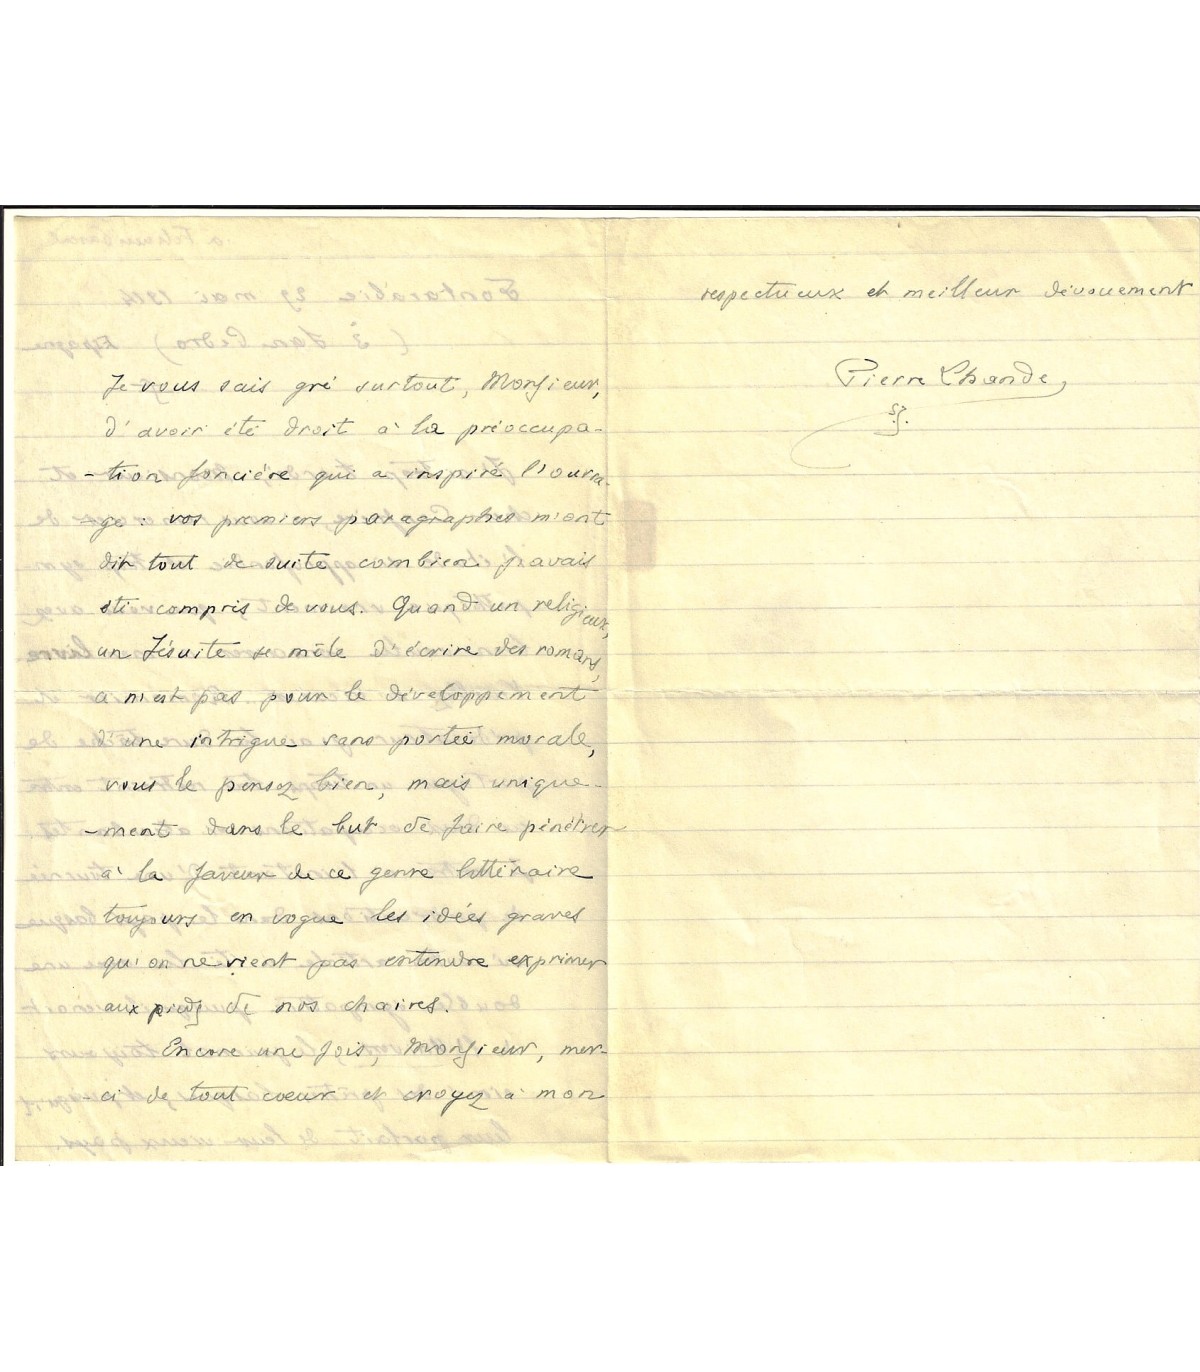 Je vous sais gré surtout, Monsieur,
d'avoir été droit à la préoccupa-
-tion foncière qui a inspiré l'ouvra-
-ge : vos premiers paragraphes m'ont
dit tout de suite combien j'avais
été compris de vous. Quand un religieux,
un Jésuite se mêle d'écrire des romans,
ce n'est pas pour le développement
d'une intrigue sans portée morale,
vous le pensez bien, mais unique-
-ment dans le but de faire pénétrer
à la faveur de ce genre littéraire
toujours en vogue les idées graves
qu'on ne vient pas entendre exprimer
aux pieds de nos chaires.
Encore une fois, Monsieur, mer-
-ci de tout coeur et croyez à mon
respectueux et meilleur dévouement
Pierre Lhande,
s.j.